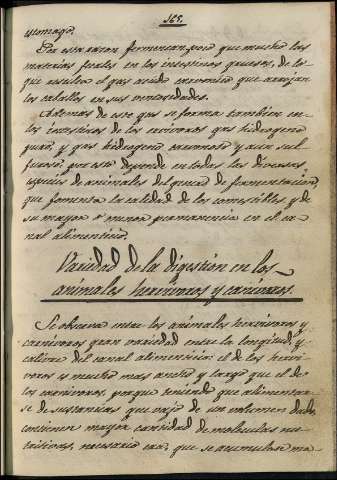 165.
estomago.
Por esta razon fermentan, poco que mucho las
materias fecales en los intestinos gruesos, de lo
que resulta el gas acido carvonico que arrojan
los caballos en sus ventosidades.
Ademas de este gas se forma tambien en
los intestinos de los carnivoros gas hidrogeno
puro, y gas hidrogeno carvonado y aun sul
furoso: por esto depende en todas las diversas
especies de animales del grado de fermentacion,
que fomenta la calidad de los comestibles y de
su mayor ó menor permanencia en el ca
nal alimenticio.
Variedad de la digestión en los
animales hervivoros y carnivoros.
Se observa entre los animales hervivoros y
carnivoros gran variedad entre la longitud, y
calibre del canal alimenticio: el de los hervi-
voros es mucho mas ancho y largo que el de
los carnivoros, porque teniendo que alimentar
se de sustancias que vajo de un volumen dado,
contienen mayor cantidad de moleculas nu-
tritivas, necesario era, que se acumulase ma-